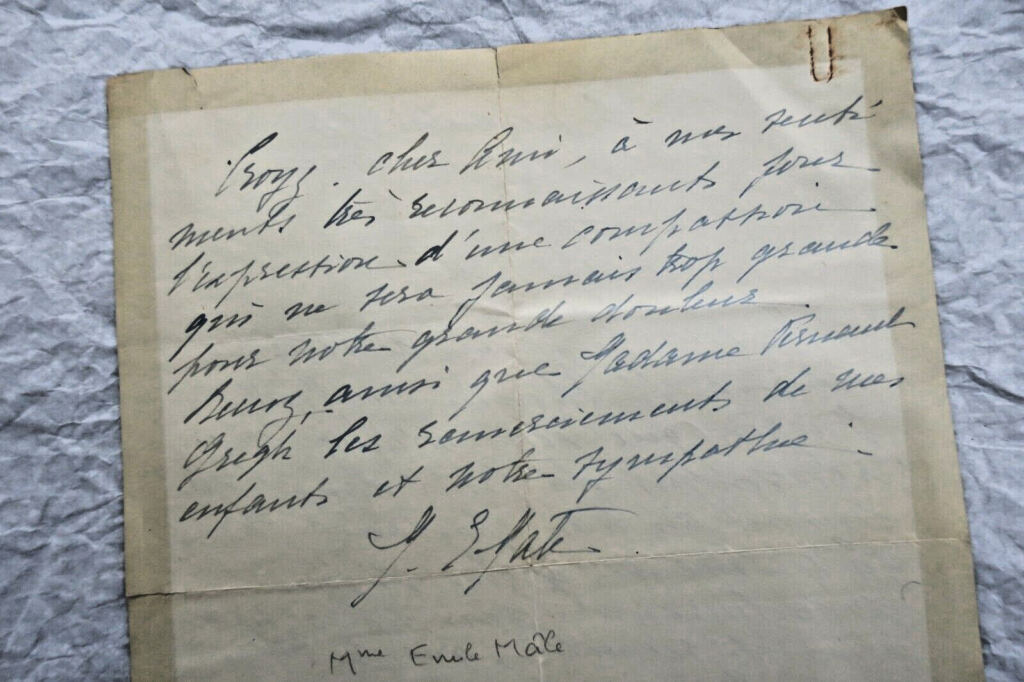 Croyez, cher Ami, à mes senti
ments très reconnaissants pour
l'expression d'une compassion
qui ne sera jamais trop grande
pour notre grande douleur.
Recevez, ainsi que Madame Fernand
Gregh les remerciements de mes
enfants et notre sympathie.
M. E. Mâle
Mme Emile Mâle